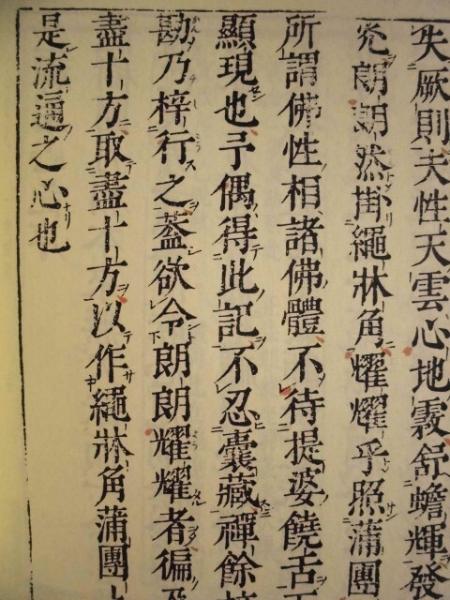 失厥則夫性天雲心地霧舒蟾輝發
朗朗然掛繩牀角耀耀乎照蒲團
所謂佛性相諸佛體不待提婆饒舌
顯現也予偶得此記不忍囊藏禪餘
勘乃梓行之蓋欲令朗朗耀耀者徧
盡十方取盡十方以作繩牀角蒲團上
是流通之心也